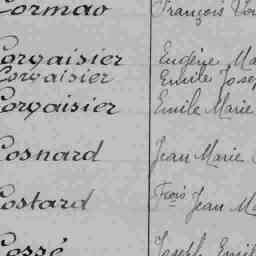 Cormao François
Corvaisier Eugène
Corvaisier Emile
Corvaisier Emile Marie
Cosnard Jean Marie
Costard Fçois Jean
Cossé Joseph Emil